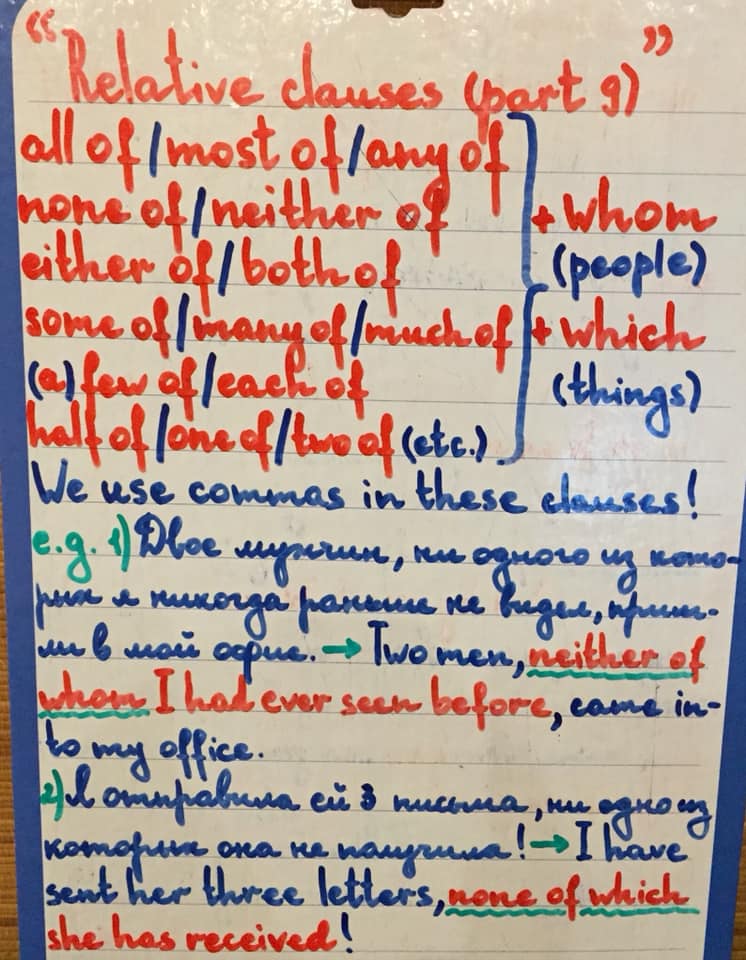 "Relative clauses (part 9)"
all of/most of/any of
none of/neither of + whom
either of/both of (people)
some of/many of/much of + which
(a) few of/each of (things)
half of/one of/two of (etc.)
We use commas in these clauses!
e.g. 1) Двое мужчин, ни одного из кото-
рых я никогда раньше не видел, приш-
ли в мой офис. → Two men, neither of
whom I had ever seen before, came in-
to my office.
2) Я отправила ей 3 письма, ни одно из
которых она не получила! → I have
sent her three letters, none of which
she has received!